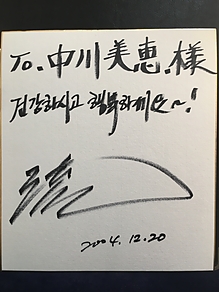 To. 中川美恵. 様
건강하시고 행복하세요~!
2004. 12. 20